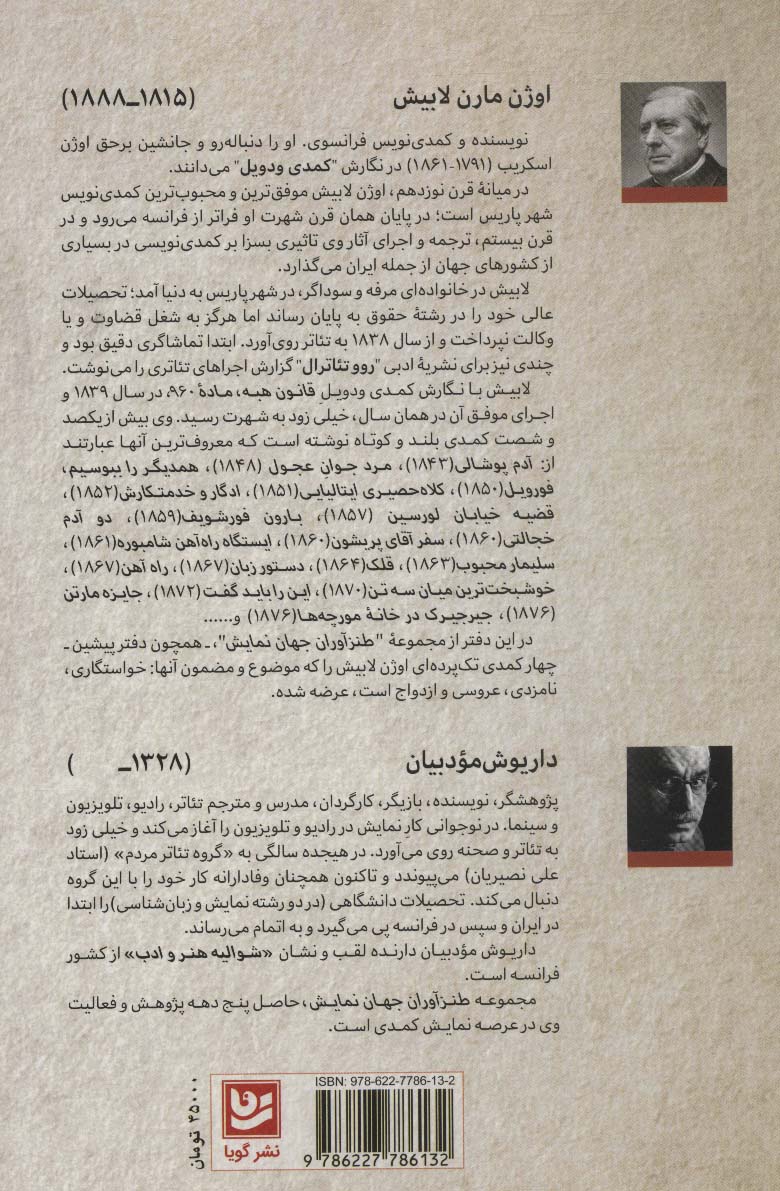 اوژن مارن لابیش (۱۸۱۵ـ۱۸۸۸)
نویسنده و کمدی‌نویس فرانسوی. او را دنباله‌رو و جانشین برحق اوژن
اسکریب (۱۷۹۱-۱۸۶۱) در نگارش "کمدی ودویل" می‌دانند.
در میانهٔ قرن نوزدهم، اوژن لابیش موفق‌ترین و محبوب‌ترین کمدی‌نویس
شهر پاریس است؛ در پایان همان قرن شهرت او فراتر از فرانسه می‌رود و در
قرن بیستم، ترجمه و اجرای آثار وی تاثیری بسزا بر کمدی‌نویسی در بسیاری
از کشورهای جهان از جمله ایران می‌گذارد.
لابیش در خانواده‌ای مرفه و سوداگر، در شهر پاریس به دنیا آمد؛ تحصیلات
عالی خود را در رشتهٔ حقوق به پایان رساند اما هرگز به شغل قضاوت و یا
وکالت نپرداخت و از سال ۱۸۳۸ به تئاتر روی‌آورد. ابتدا تماشاگری دقیق بود و
چندی نیز برای نشریهٔ ادبی "روو تئاترال" گزارش اجراهای تئاتری را می‌نوشت.
لابیش با نگارش کمدی ودویل قانون هبه، مادهٔ ۹۶۰، در سال ۱۸۳۹ و
اجرای موفق آن در همان سال، خیلی زود به شهرت رسید. وی بیش از یکصد
و شصت کمدی بلند و کوتاه نوشته است که معروف‌ترین آنها عبارتند
از: آدم پوشالی(۱۸۴۳)، مرد جوان عجول (۱۸۴۸)، همدیگر را ببوسیم،
فورویل(۱۸۵۰)، کلاه‌حصیری ایتالیایی(۱۸۵۱)، ادگار و خدمتکارش(۱۸۵۲)،
قضیه خیابان لورسین (۱۸۵۷)، بارون فورشویف(۱۸۵۹)، دو آدم
خجالتی(۱۸۶۰)، سفر آقای پریشون(۱۸۶۰)، ایستگاه راه‌آهن شامبوره(۱۸۶۱)،
سلیمار محبوب(۱۸۶۳)، قلک(۱۸۶۴)، دستور زبان(۱۸۶۷)، راه آهن(۱۸۶۷)،
خوشبخت‌ترین میان سه تن(۱۸۷۰)، این را باید گفت(۱۸۷۲)، جایزه مارتن
(۱۸۷۶)، جیرجیرک در خانهٔ مورچه‌ها(۱۸۷۶) و......
در این دفتر از مجموعهٔ "طنزآوران جهان نمایش"، ـ همچون دفتر پیشین ـ
چهار کمدی تک‌پرده‌ای اوژن لابیش را که موضوع و مضمون آنها: خواستگاری،
نامزدی، عروسی و ازدواج است، عرضه شده.
داریوش مؤدبیان (۱۳۲۸ـ )
پژوهشگر، نویسنده، بازیگر، کارگردان، مدرس و مترجم تئاتر، رادیو، تلویزیون
و سینما. در نوجوانی کار نمایش در رادیو و تلویزیون را آغاز می‌کند و خیلی زود
به تئاتر و صحنه روی می‌آورد. در هیجده سالگی به «گروه تئاتر مردم» (استاد
علی نصیریان) می‌پیوندد و تاکنون همچنان وفادارانه کار خود را با این گروه
دنبال می‌کند. تحصیلات دانشگاهی (در دو رشته نمایش و زبان‌شناسی)را ابتدا
در ایران و سپس در فرانسه پی می‌گیرد و به اتمام می‌رساند.
داریوش مؤدبیان دارنده لقب و نشان «شوالیه هنر و ادب» از کشور
فرانسه است.
مجموعه طنزآوران جهان نمایش، حاصل پنج دهه پژوهش و فعالیت
وی در عرصه نمایش کمدی است.
ISBN: 978-622-7786-13-2
9 786227 786132
نشر گویا
۴۵۰۰۰ تومان